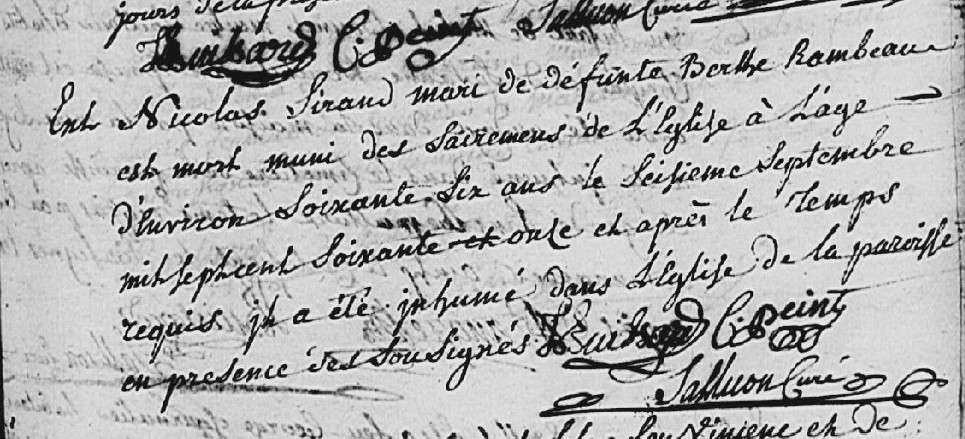 jours de la
C. Peint Salluon Curé
Ent. Nicolas Sirand mari de défunte Berthe Rambeau
est mort muni des sacremens de L'Eglise à L'age
d'environ Soixante Six ans le Seisieme Septembre
mil sept cent Soixante et onze et après le Temps
requis jl a été jnhumé dans L'Eglise de la paroisse
en presence des Sousignés C. Peint
Salluon Curé
et de